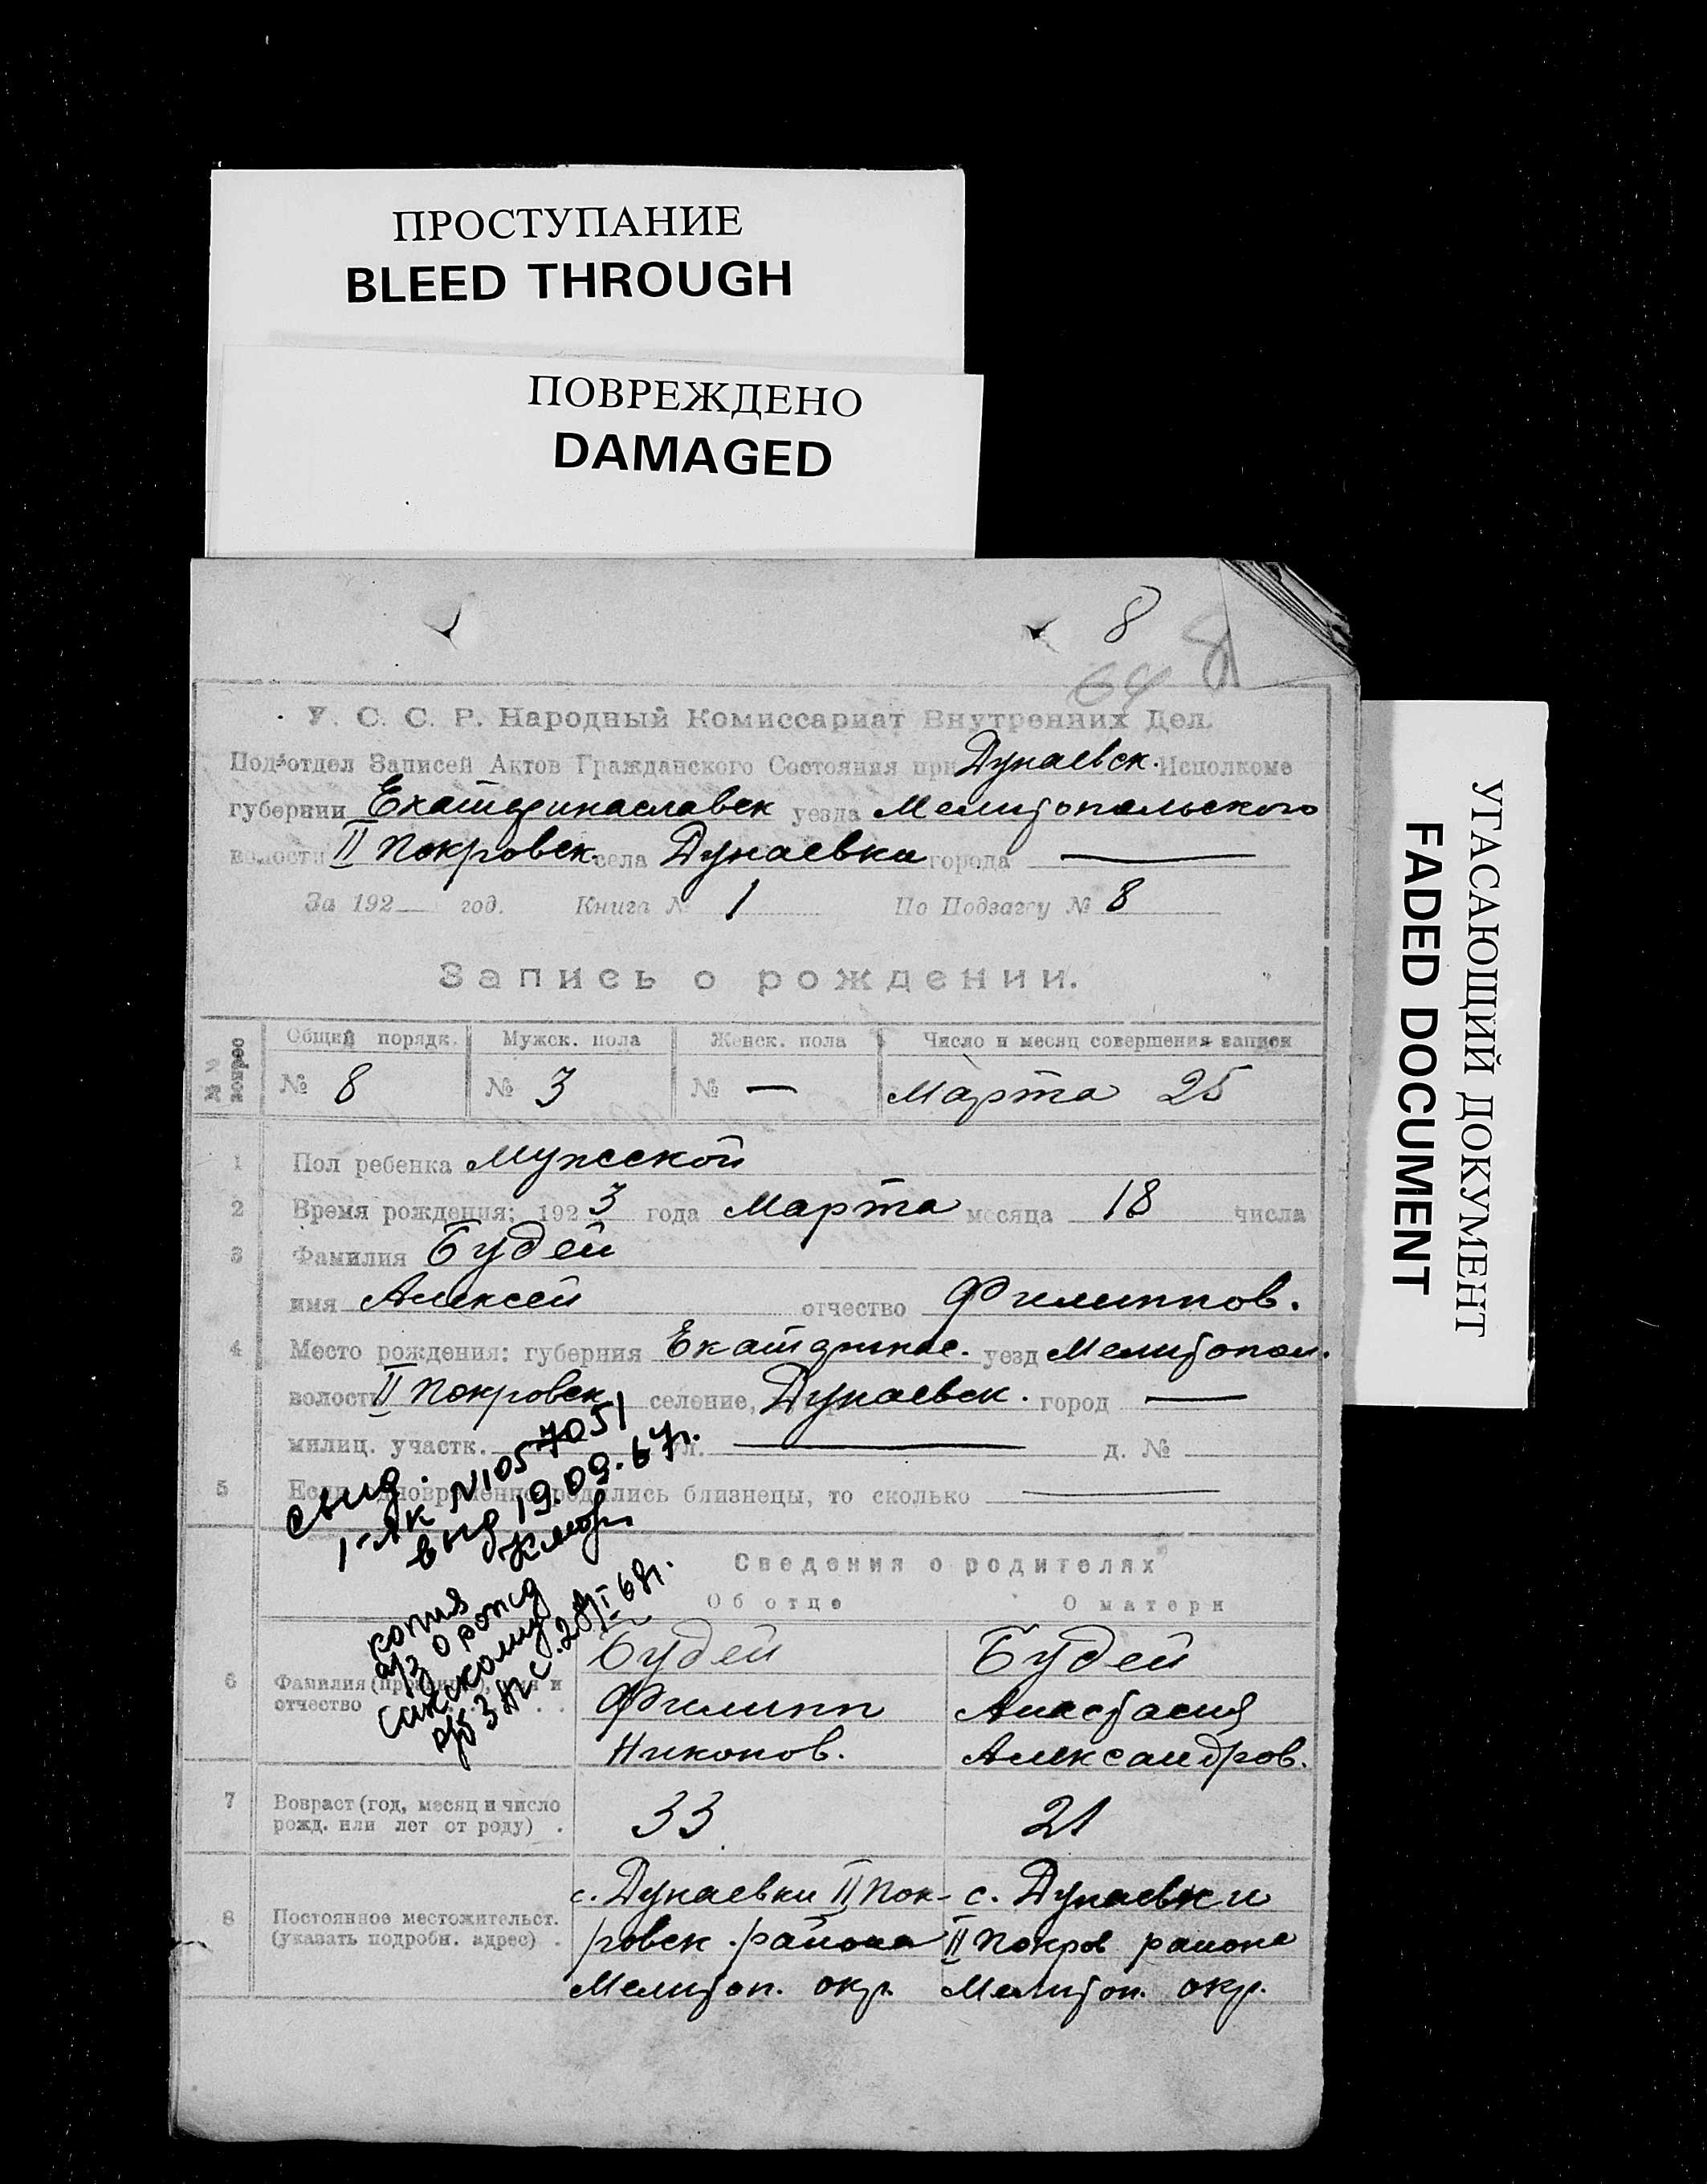 ПРОСТУПАНИЕ
BLEED THROUGH
ПОВРЕЖДЕНО
DAMAGED
УГАСАЮЩИЙ ДОКУМЕНТ
FADED DOCUMENT
8
64 8
У. С. С. Р. Народный Комиссариат Внутренних Дел.
Под'отдел Записей Актов Гражданского Состояния при Дунаевск. Исполкоме
губернии Екатеринаславск уезда Мелитопольского
волости II Покровск. села Дунаевки города —
За 192 год. Книга № 1 По Подзагсу № 8
Запись о рождении.
Общий порядк. Мужск. пола Женск. пола Число и месяц совершения записи
№ 8 № 3 № — Марта 25
1 Пол ребенка Мужской
2 Время рождения: 1923 года Марта месяца 18 числа
3 Фамилия Будей
имя Алексей отчество Филиппов.
4 Место рождения: губерния Екатеринос. уезд Мелитопол.
волость II Покровск селение, Дунаевск. город —
милиц. участк. ул. — д. №
5 Если одновременно родились близнецы, то сколько —
свид.
I-ЯК №1057051
выд 19.09.67г.
копия
а/з о рожд
Сакскому
р/б ЗАГС. 28/I-68г.
Сведения о родителях
Об отце О матери
6 Фамилия (прозвище), имя и отчество Будей Будей
Филипп Анастасия
Никонов. Александров.
7 Возраст (год, месяц и число
рожд. или лет от роду) . 33 21
8 Постоянное местожительст.
(указать подробн. адрес) .
с. Дунаевки II Пок- с. Дунаевки
ровск. района II Покров района
Мелитоп. окр. Мелитоп. окр.